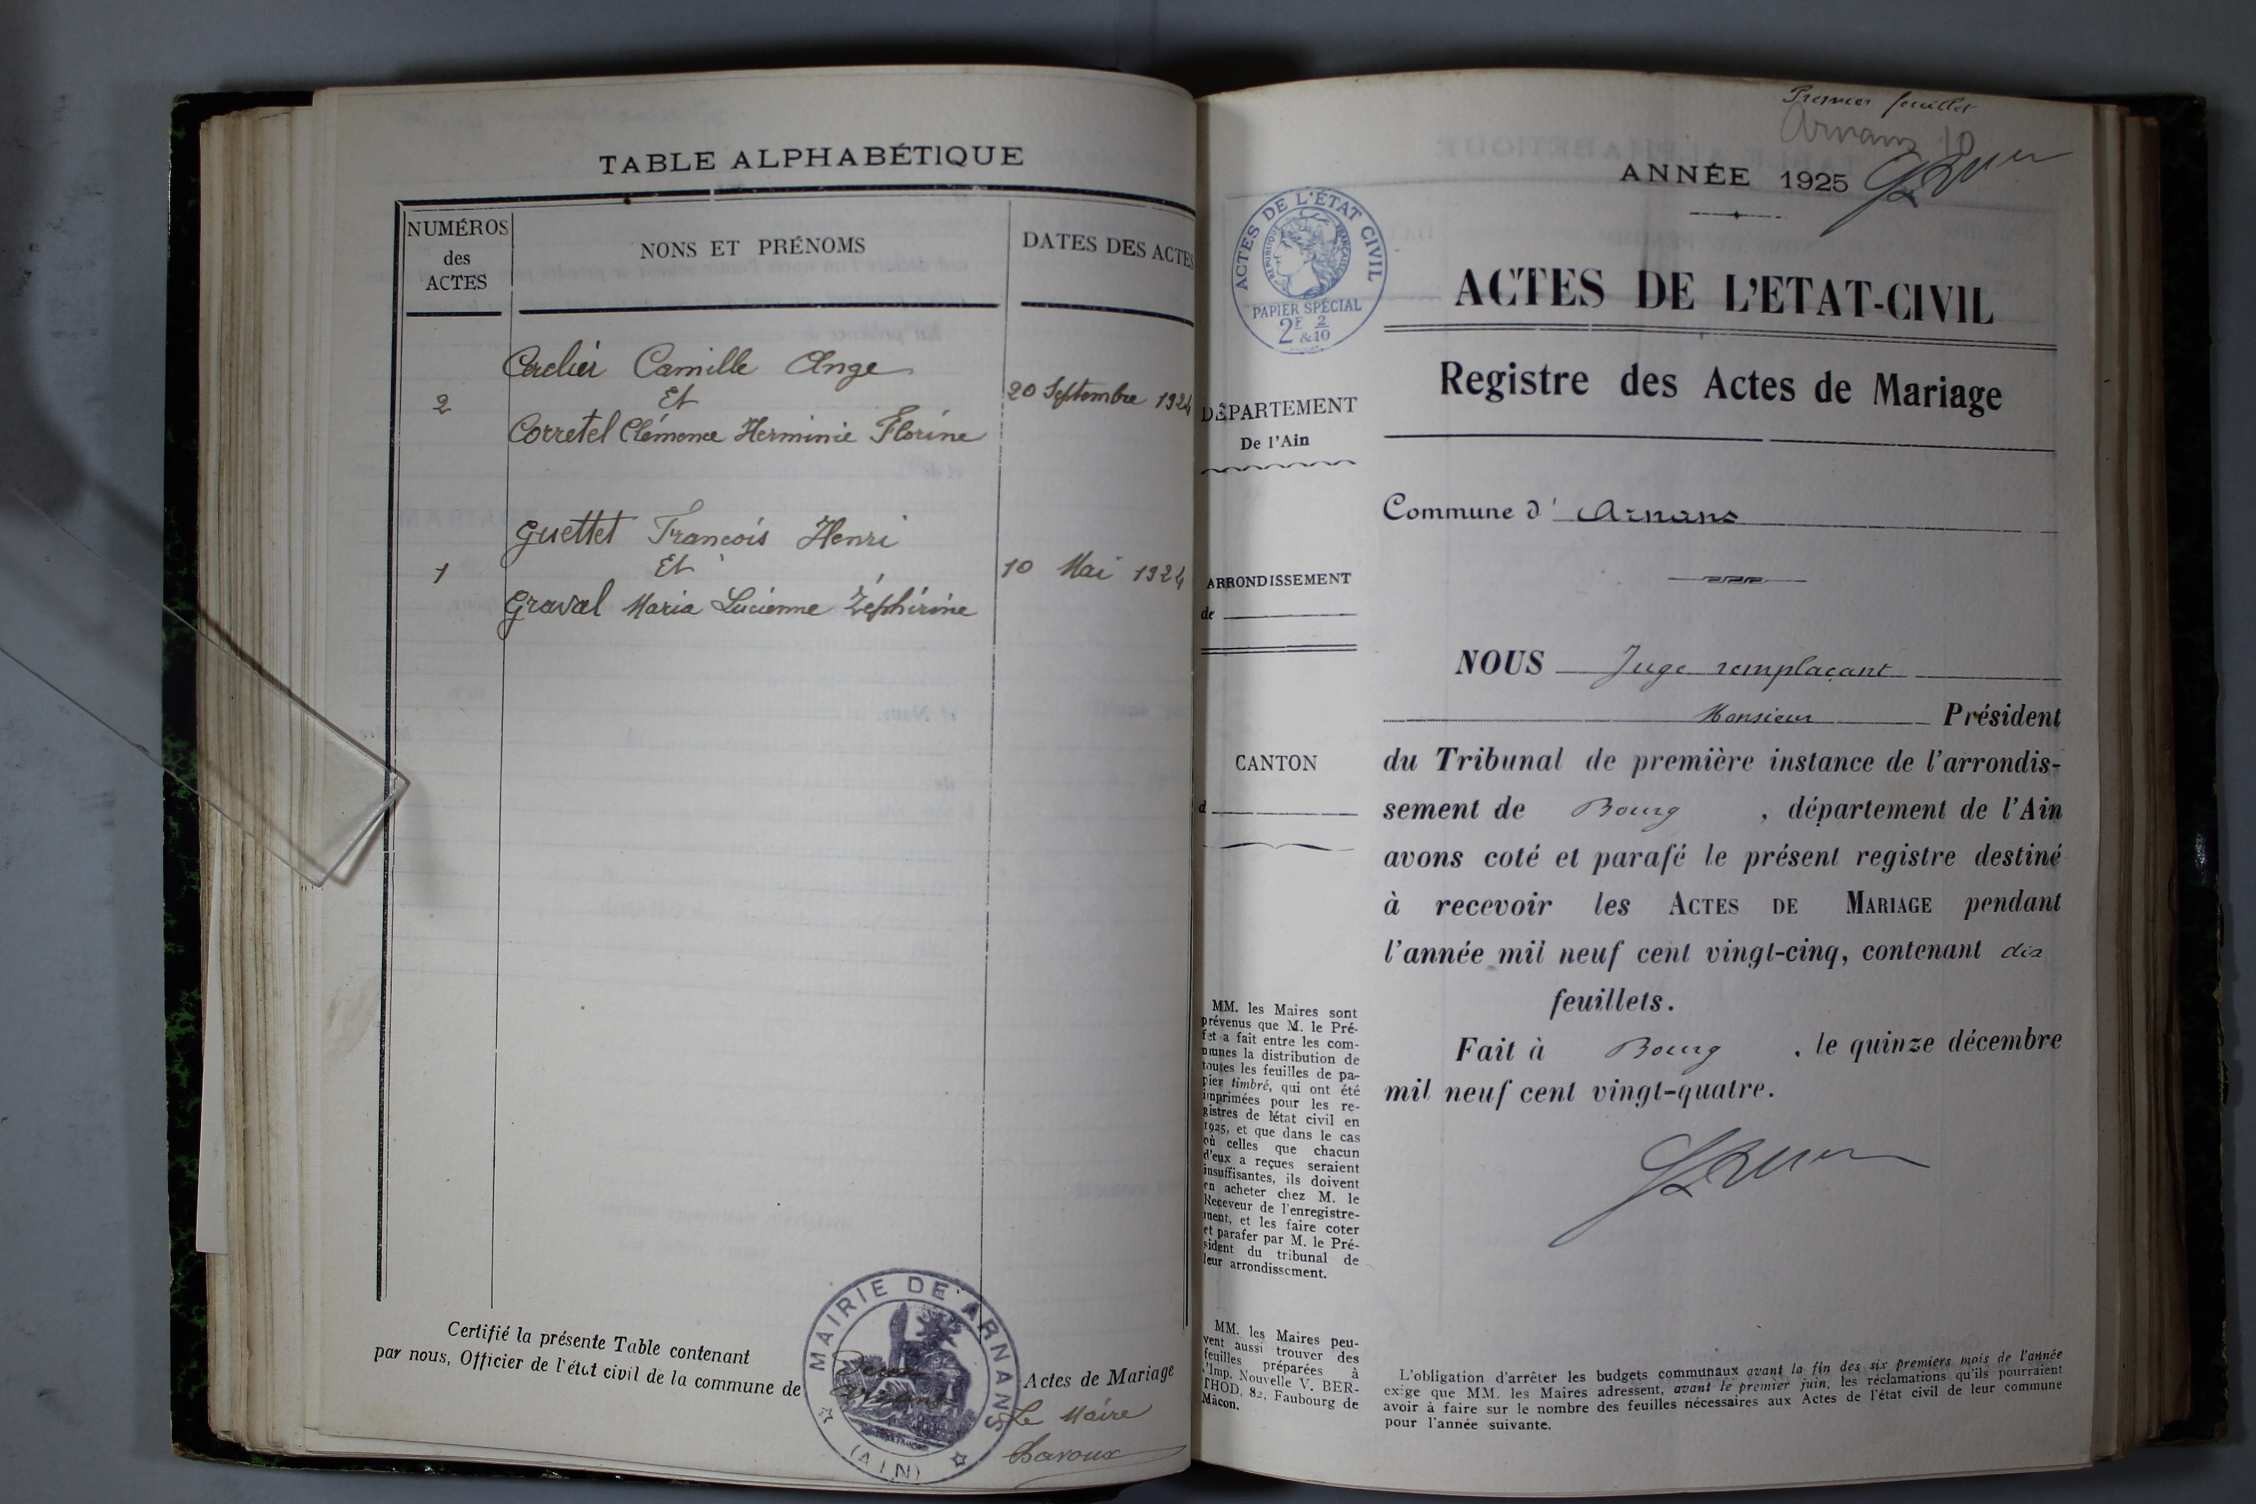 TABLE ALPHABÉTIQUE
NUMÉROS
des
ACTES
NONS ET PRÉNOMS
DATES DES ACTES
Camille Ange
Et
2
20 Septembre 1924
Corretel Clémence Herminie Florine
Guettet François Henri
Et
1
10 Mai 1924
Graval Maria Lucienne Zéphirine
Certifié la présente Table contenant
par nous, Officier de l'état civil de la commune de
Deux
Arnans
Actes de Mariage
Le Maire
MAIRIE DE ARNANS
(AIN)
Premier feuillet
Arnans 10
ANNÉE 1925
ACTES DE L'ÉTAT CIVIL
RÉPUBLIQUE FRANÇAISE
PAPIER SPÉCIAL
2F & 2/10
ACTES DE L'ETAT-CIVIL
Registre des Actes de Mariage
DÉPARTEMENT
De l'Ain
Commune d' Arnans
ARRONDISSEMENT
de
CANTON
d
NOUS Juge remplaçant
Monsieur Président
du Tribunal de première instance de l'arrondis-
sement de Bourg , département de l'Ain
avons coté et parafé le présent registre destiné
à recevoir les ACTES DE MARIAGE pendant
l'année mil neuf cent vingt-cinq, contenant dix
feuillets.
Fait à Bourg , le quinze décembre
mil neuf cent vingt-quatre.
MM. les Maires sont
prévenus que M. le Pré-
fet a fait entre les com-
munes la distribution de
toutes les feuilles de pa-
pier timbré, qui ont été
imprimées pour les re-
gistres de l'état civil en
1925, et que dans le cas
où celles que chacun
d'eux a reçues seraient
insuffisantes, ils doivent
en acheter chez M. le
Receveur de l'enregistre-
ment, et les faire coter
et parafer par M. le Pré-
sident du tribunal de
leur arrondissement.
MM. les Maires peu-
vent aussi trouver des
feuilles préparées à
l'Imp. Nouvelle V. BER-
THOD, 82, Faubourg de
Mâcon.
L'obligation d'arrêter les budgets communaux avant la fin des six premiers mois de l'année
exige que MM. les Maires adressent, avant le premier juin, les réclamations qu'ils pourraient
avoir à faire sur le nombre des feuilles nécessaires aux Actes de l'état civil de leur commune
pour l'année suivante.